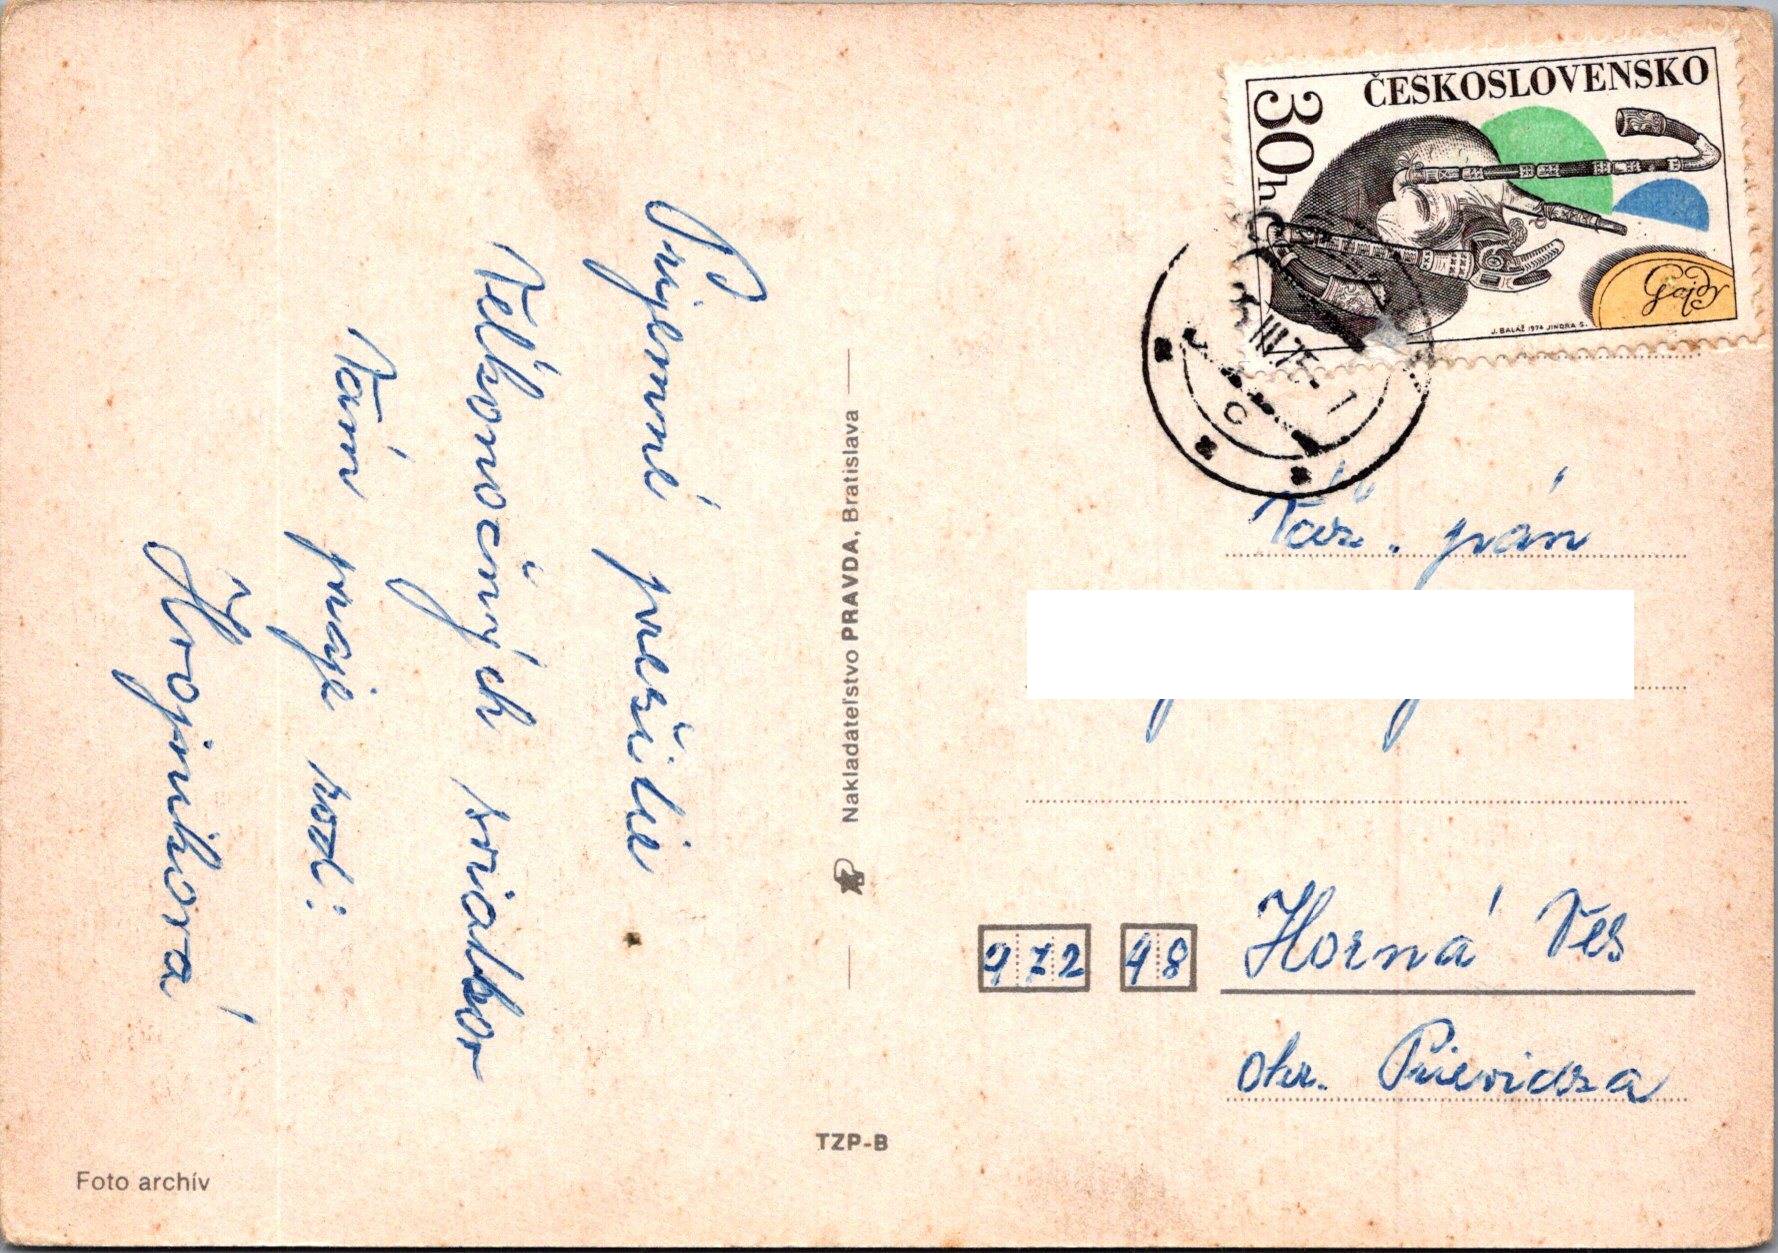 Príjemné prežitie
Veľkonočných sviatkov
Vám praje rod:
Hrojniková
Foto archív
TZP-B
Nakladateľstvo PRAVDA, Bratislava
ČESKOSLOVENSKO
30h
Gajdy
J. BALÁŽ 1974 JINDRA S.
III.75-1
C
Váž. pán
972 48 Horná Ves
okr. Prievidza